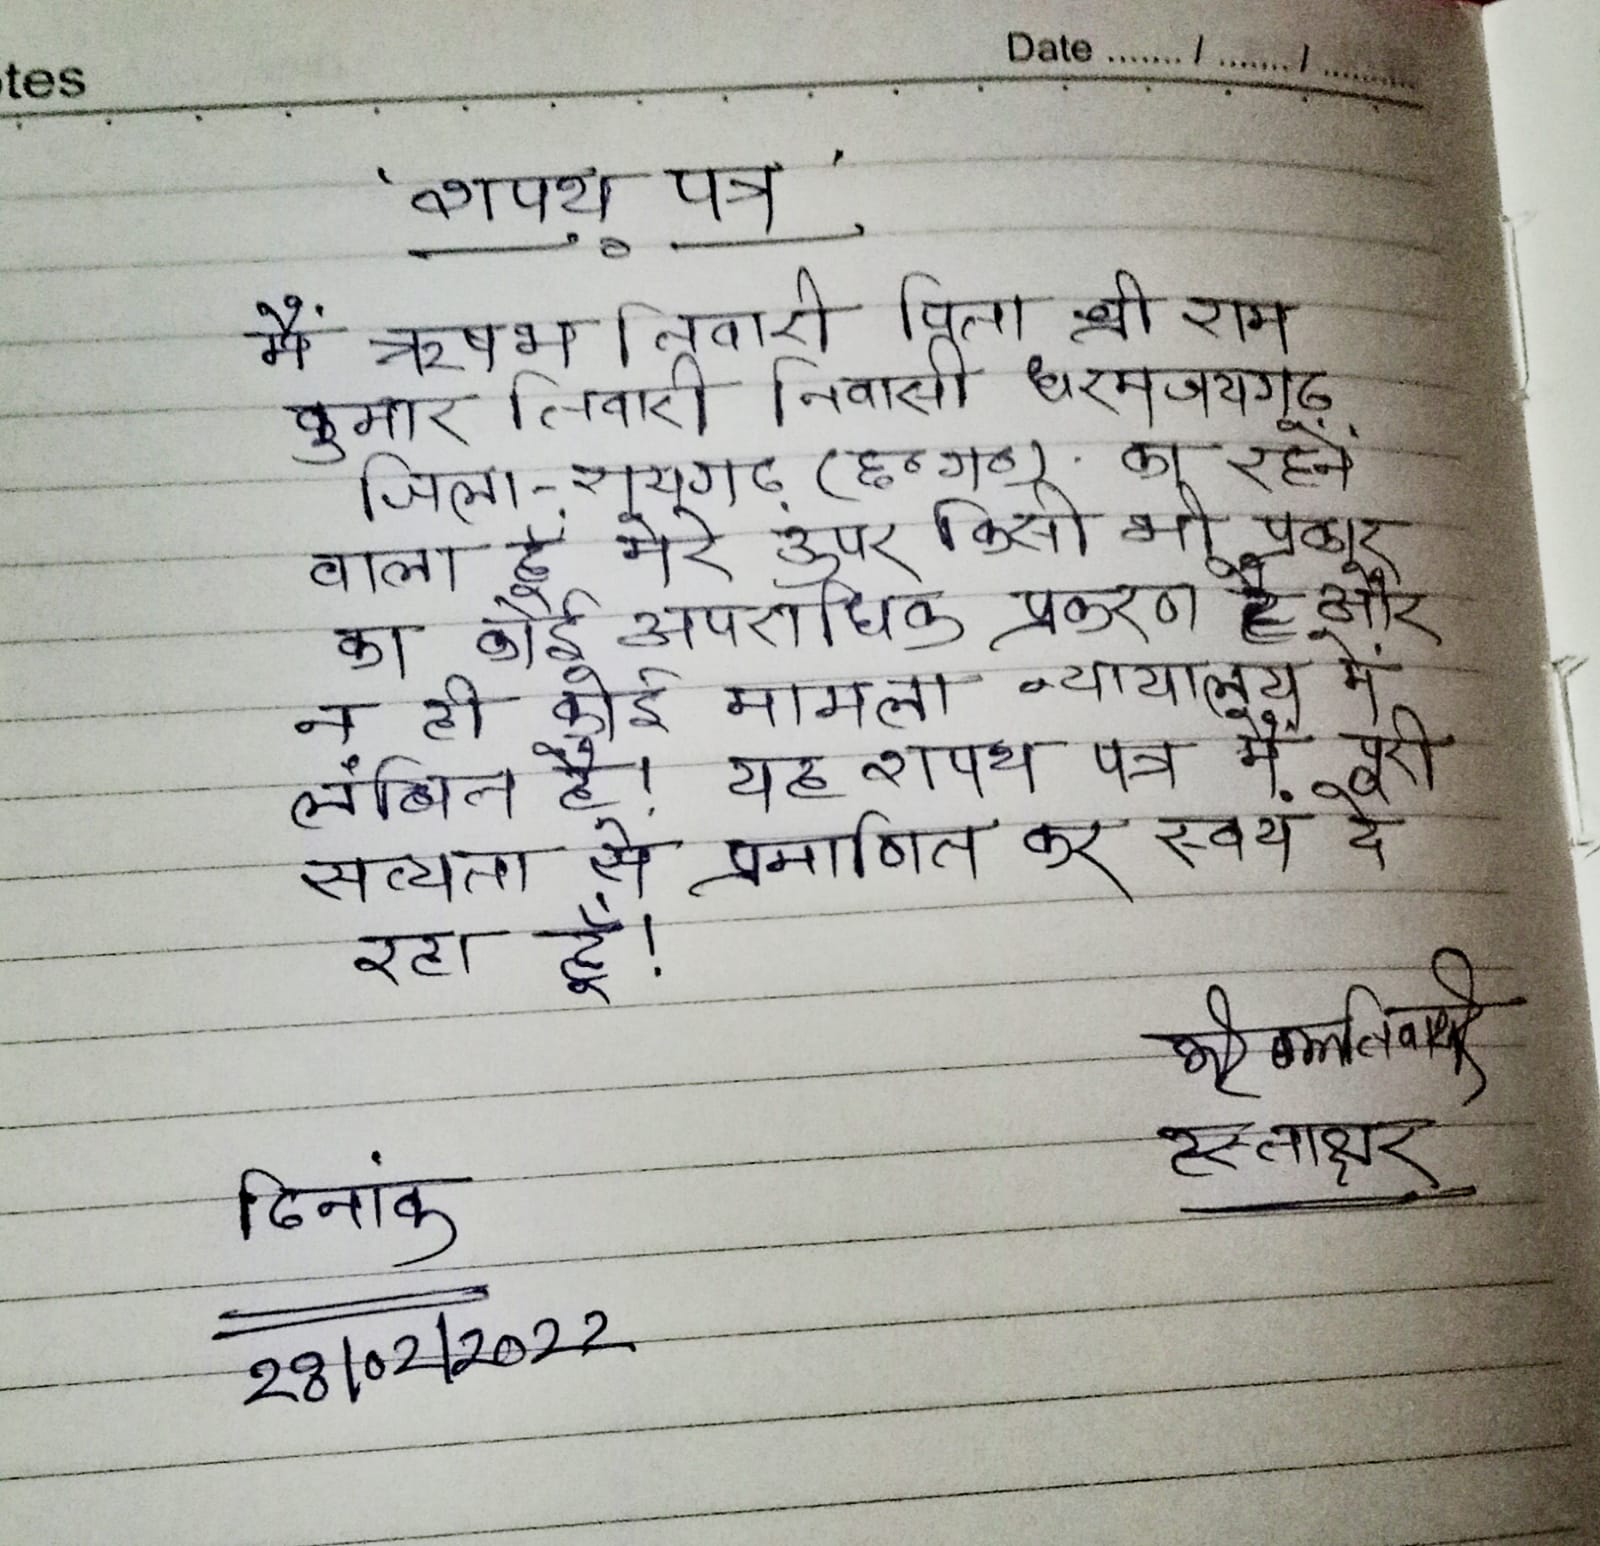 tes
Date ....... / ....... / .........
'शपथ पत्र'
मैं ऋषभ तिवारी पिता श्री राम
कुमार तिवारी निवासी धरमजयगढ़
जिला-रायगढ़ (छ०ग०). का रहने
वाला हूँ मेरे उपर किसी भी प्रकार
का कोई अपराधिक प्रकरण है और
न ही कोई मामला न्यायालय में
लंबित है! यह शपथ पत्र मैं पूरी
सत्यता से प्रमाणित कर स्वयं दे
रहा हूँ!
हस्ताक्षर
दिनांक
28/02/2022